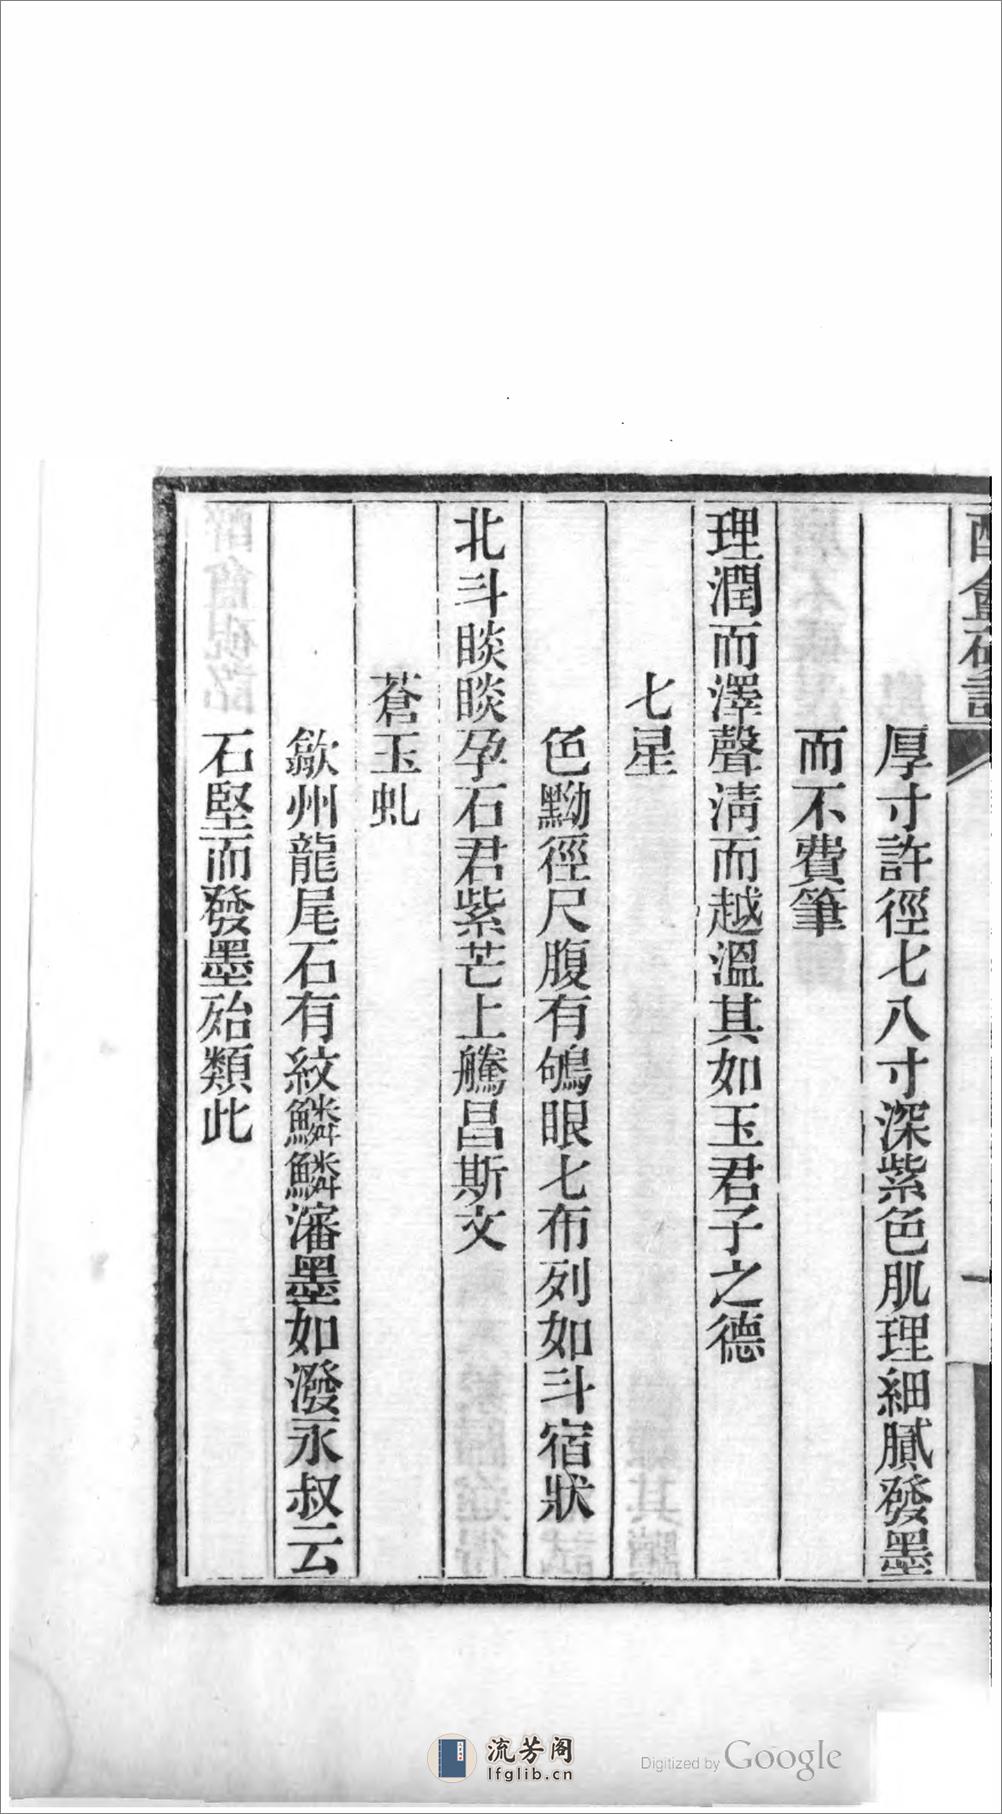 厚寸許徑七八寸深紫色肌理細膩發墨
而不費筆
理潤而澤聲淸而越溫其如玉君子之德
七星
色黝徑尺腹有鴝眼七布列如斗宿狀
北斗睒睒孕石君紫芒上騰昌斯文
蒼玉虬
歙州龍尾石有紋鱗鱗瀋墨如潑永叔云
石堅而發墨殆類此
流芳阁
lfglib.cn
Digitized by Google